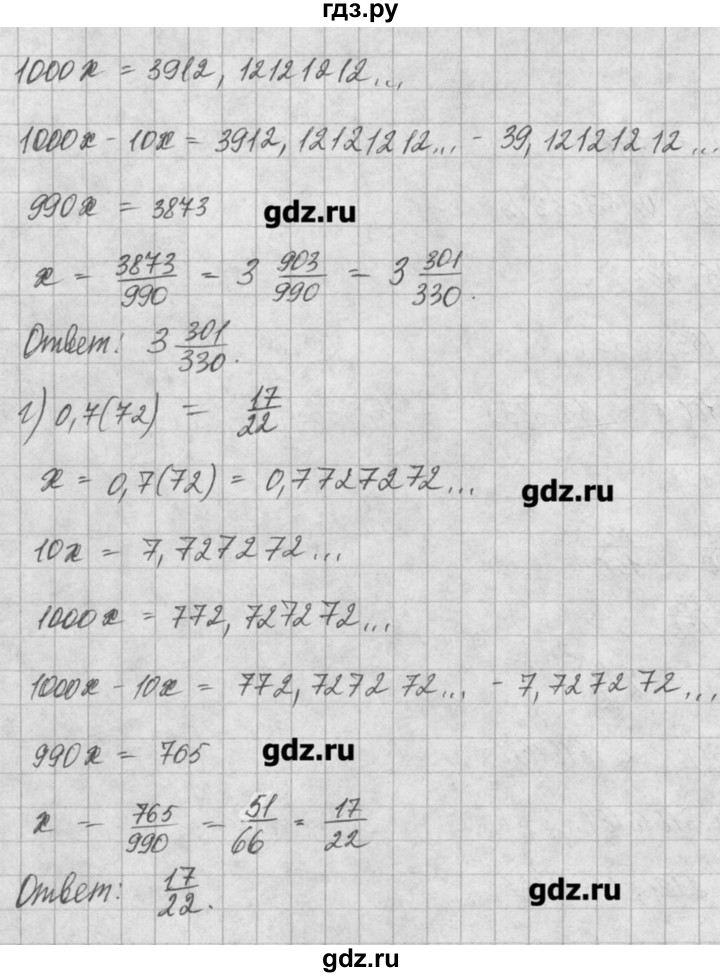 гдз.ру
1000x = 3912, 12121212...
1000x - 10x = 3912, 12121212... - 39, 12121212...
990x = 3873 gdz.ru
x = 3873/990 = 3 903/990 = 3 301/330.
Ответ: 3 301/330.
г) 0,7(72) = 17/22
x = 0,7(72) = 0,7727272... gdz.ru
10x = 7,727272...
1000x = 772,727272...
1000x - 10x = 772,727272... - 7,727272...
990x = 765 gdz.ru
x = 765/990 = 51/66 = 17/22
Ответ: 17/22. gdz.ru
gdz.ru